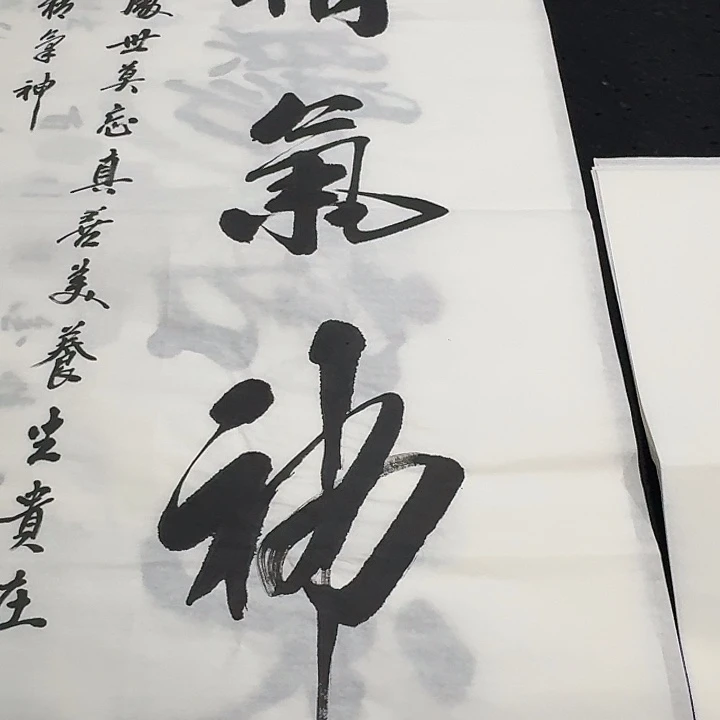 精氣神
處世莫忘真善美養生貴在
精氣神